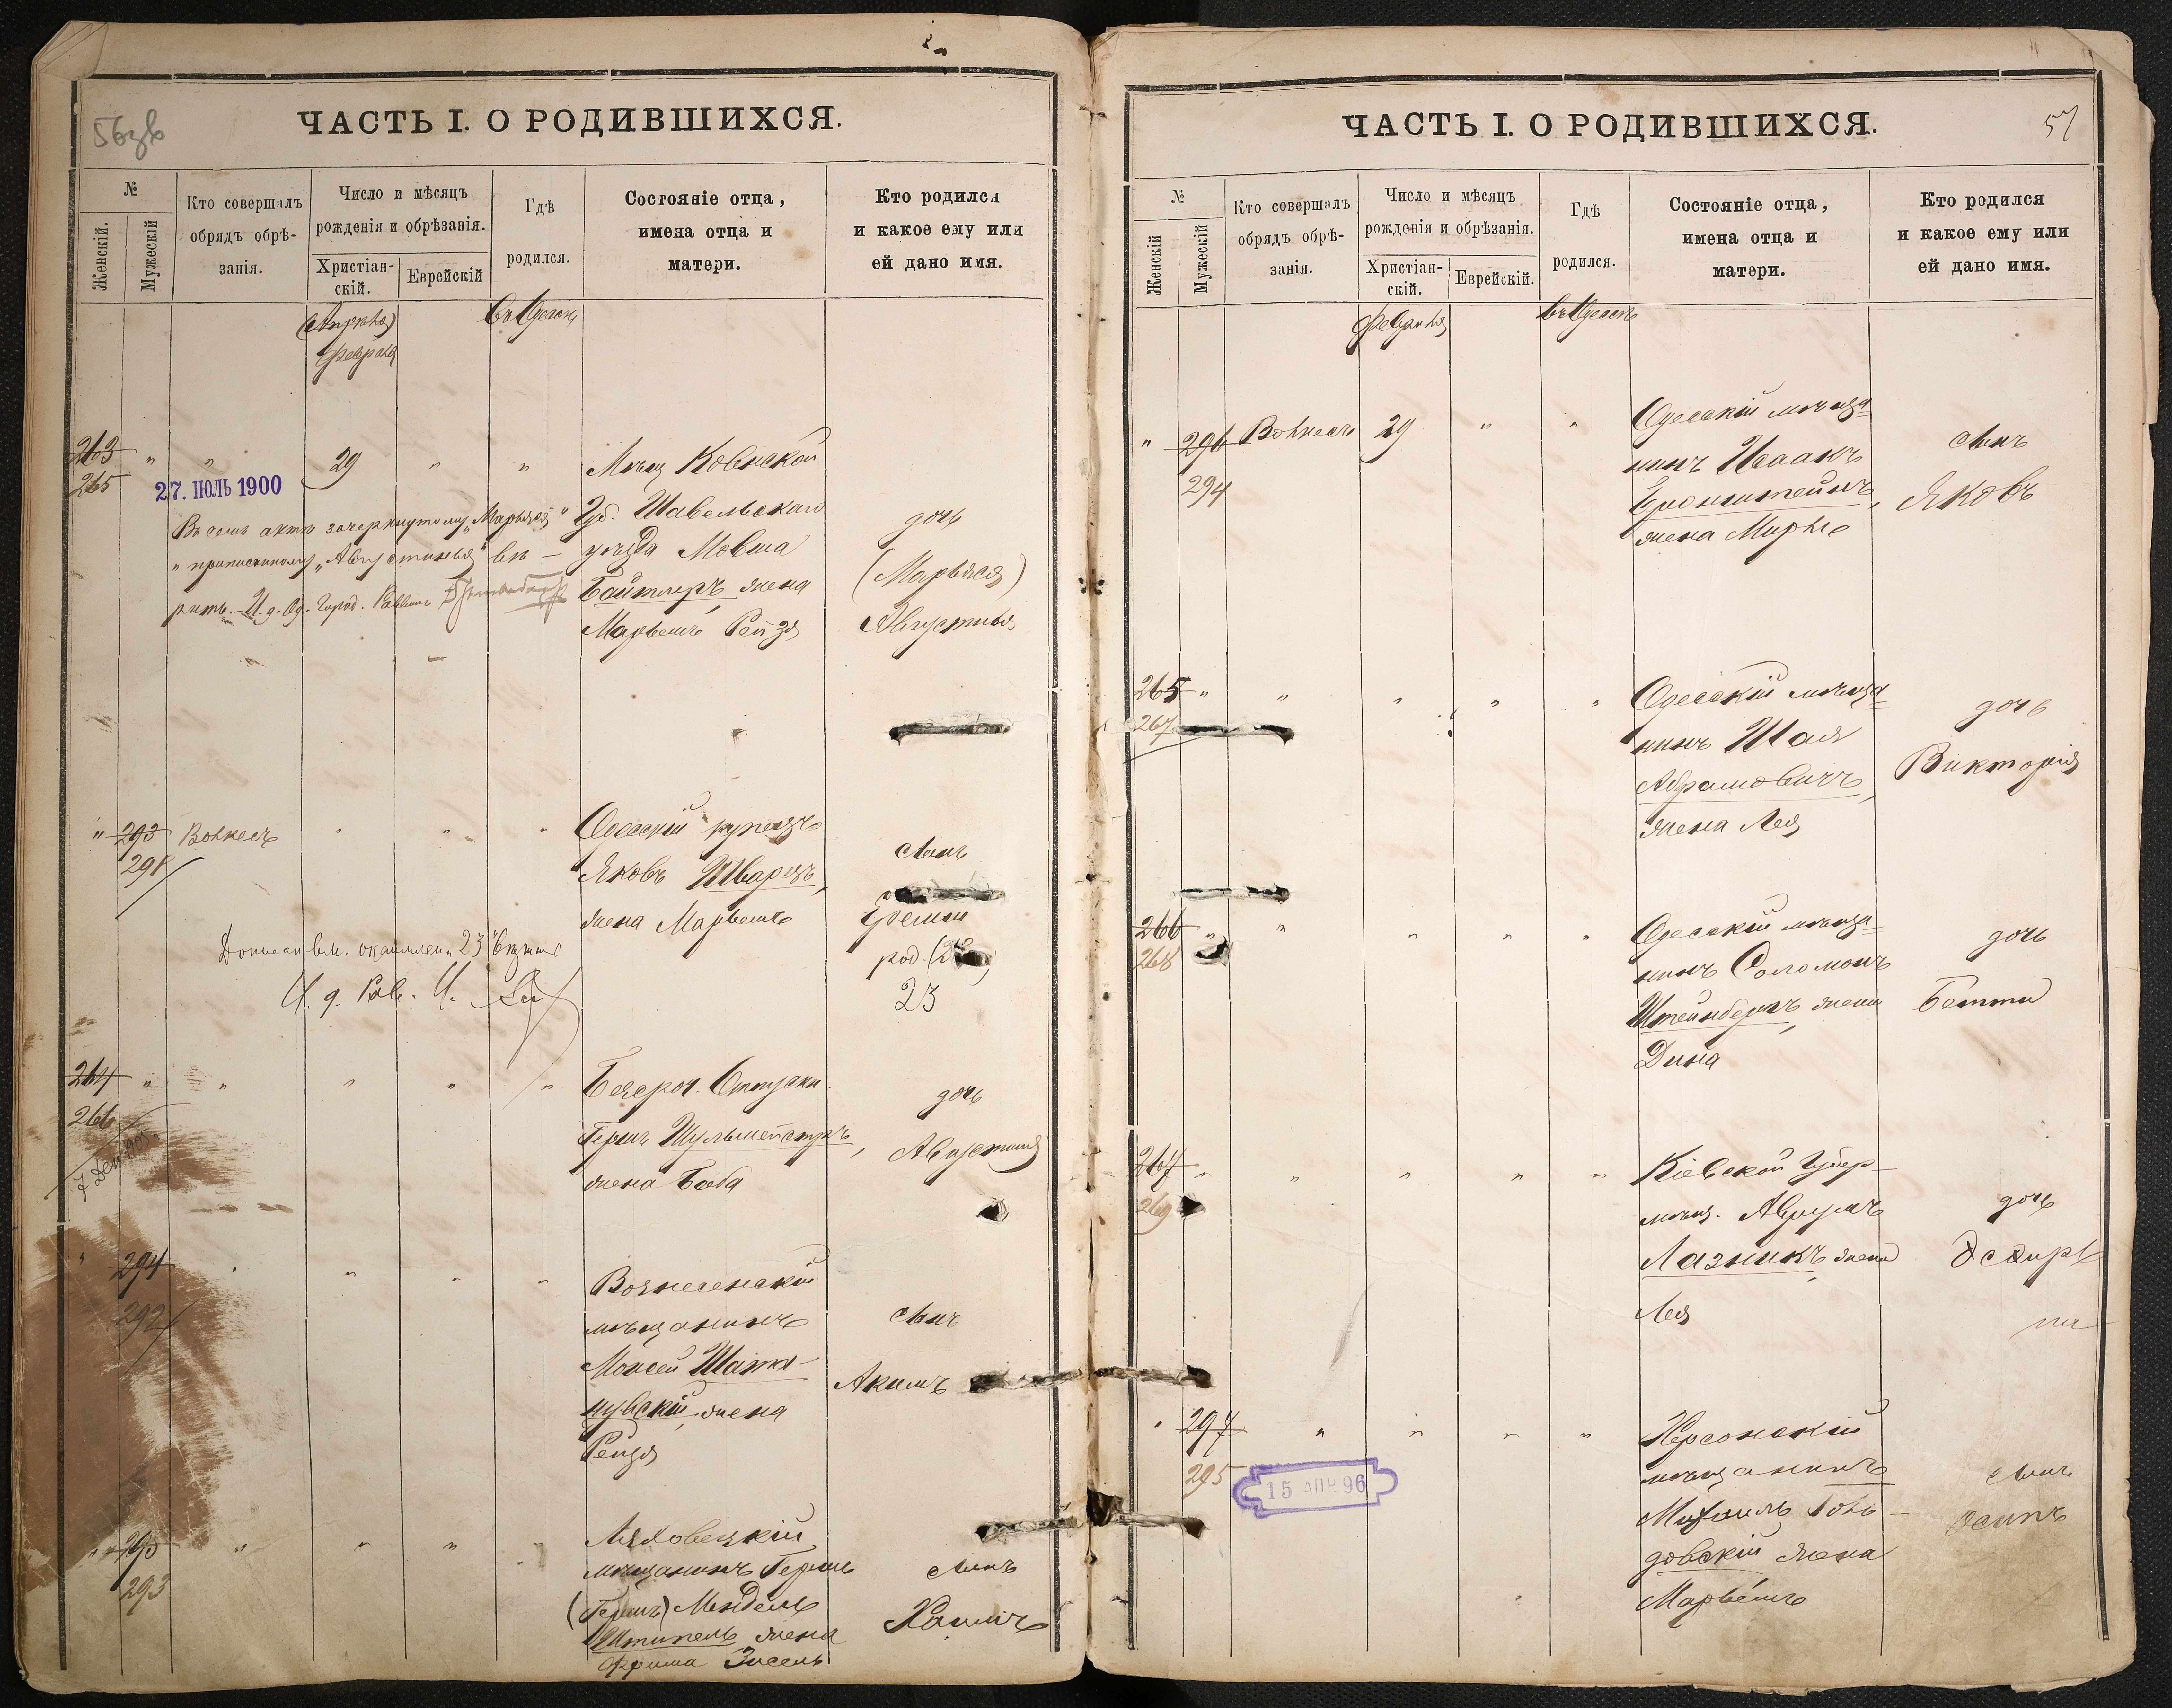 56зв
ЧАСТЬ I. О РОДИВШИХСЯ.
№
Женскій.
Мужескій
Кто совершалъ
обрядъ обрѣ-
занія.
Число и мѣсяцъ
рожденія и обрѣзанія.
Христіан-
скій.
Еврейскій
Гдѣ
родился.
Состояніе отца,
имена отца и
матери.
Кто родился
и какое ему или
ей дано имя.
(Апрѣля)
Февраля
въ Одессѣ
263 " " 29 " "
265
27. ІЮЛЬ 1900
Мѣщ Ковенской
Губ. Шавельскаго
уѣзда Мовша
Байтлеръ, жена
Марьемъ Рейзя
дочь
(Марьяся)
Августинья
Въ семъ актѣ зачеркнутому „Марьяся"
" приписанному „Августинья" вѣ-
рить. И. д. Од. Город. Раввина
" 293 Волкесъ " " "
291
Одесскій купецъ
Яковъ Шварцъ,
жена Марьемъ
сынъ
род.
23
23
И. д. Рав.
264 " " " " "
266
Гершъ Шульмейстеръ,
жена Баба
дочь
Августина
" 294
292
Вознесенскій
мѣщанинъ
Моисей Шата-
новскій, жена
Рейзя
сынъ
Акимъ
" 295 " " " "
293
Ляховецкій
мѣщанинъ Гершъ
(Гершъ) Мендель
Штипель жена
Фрима Зисель
сынъ
Хаимъ
ЧАСТЬ I. О РОДИВШИХСЯ.
57
№
Женскій
Мужескій
Кто совершалъ
обрядъ обрѣ-
занія.
Число и мѣсяцъ
рожденія и обрѣзанія.
Христіан-
скій.
Еврейскій.
Гдѣ
родился.
Состояніе отца,
имена отца и
матери.
Кто родился
и какое ему или
ей дано имя.
Февраля
въ Одессѣ
" 296 Волкесъ 29 " "
294
Одесскій мѣща-
нинъ Исаакъ
Бронштейнъ,
жена Мирля
сынъ
Яковъ
265 " " " " "
267
Одесскій мѣща-
нинъ Шая
Абрамовичъ,
жена Лея
дочь
Викторія
266 " " " " "
268
Одесскій мѣща-
нинъ Соломонъ
Штейнбергъ, жена
Дина
дочь
Бетти
267 " " " " "
269
Кіевской Губер-
мѣщ. Аврумъ
Лазникъ, жена
Лея
дочь
Эсфирь
" 297 " " " "
295
15 АПР. 96
Херсонскій
мѣщанинъ
довскій жена
Марьемъ
сынъ
Осипъ